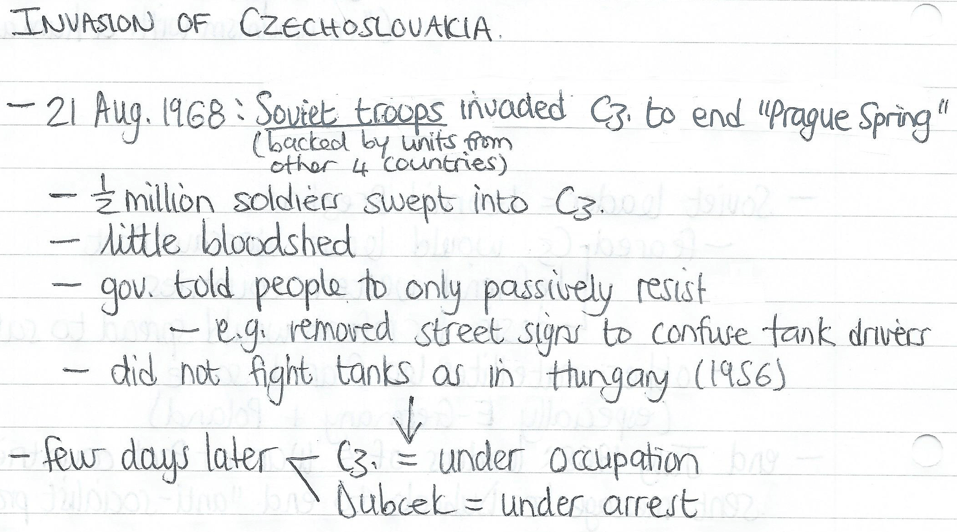 INVASION OF CZECHOSLOVAKIA.
- 21 Aug. 1968: Soviet troops invaded Cz. to end "Prague Spring"
(backed by units from
other 4 countries)
- ½ million soldiers swept into Cz.
- little bloodshed
- gov. told people to only passively resist
- e.g. removed street signs to confuse tank drivers
- did not fight tanks as in Hungary (1956)
↓
- few days later - Cz. = under occupation
\ Dubcek = under arrest